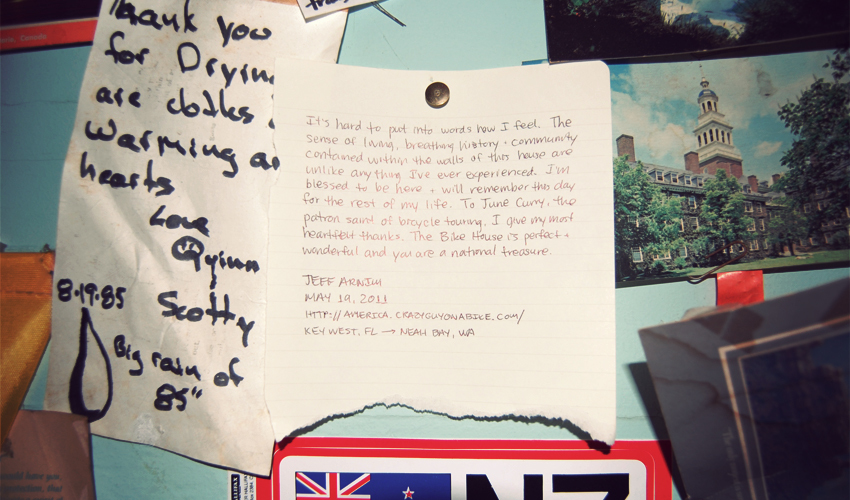 Thank you
for Drying
are clothes
Warming
hearts
Love
Quinn
Scotty
8.19.85
Big rain of
85"
It's hard to put into words how I feel. The
sense of living, breathing history + community
contained within the walls of this house are
unlike anything I've ever experienced. I'm
blessed to be here + will remember this day
for the rest of my life. To June Curry, the
patron saint of bicycle touring, I give my most
heartfelt thanks. The Bike House is perfect +
wonderful and you are a national treasure.
JEFF
MAY 19, 2011
HTTP://AMERICA.CRAZYGUYONABIKE.COM/
KEY WEST, FL → NEAH BAY, WA
HALIFAX
NZ